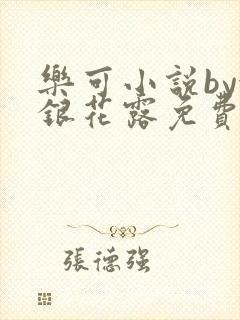 樂可小說by
銀花露免費
張德强